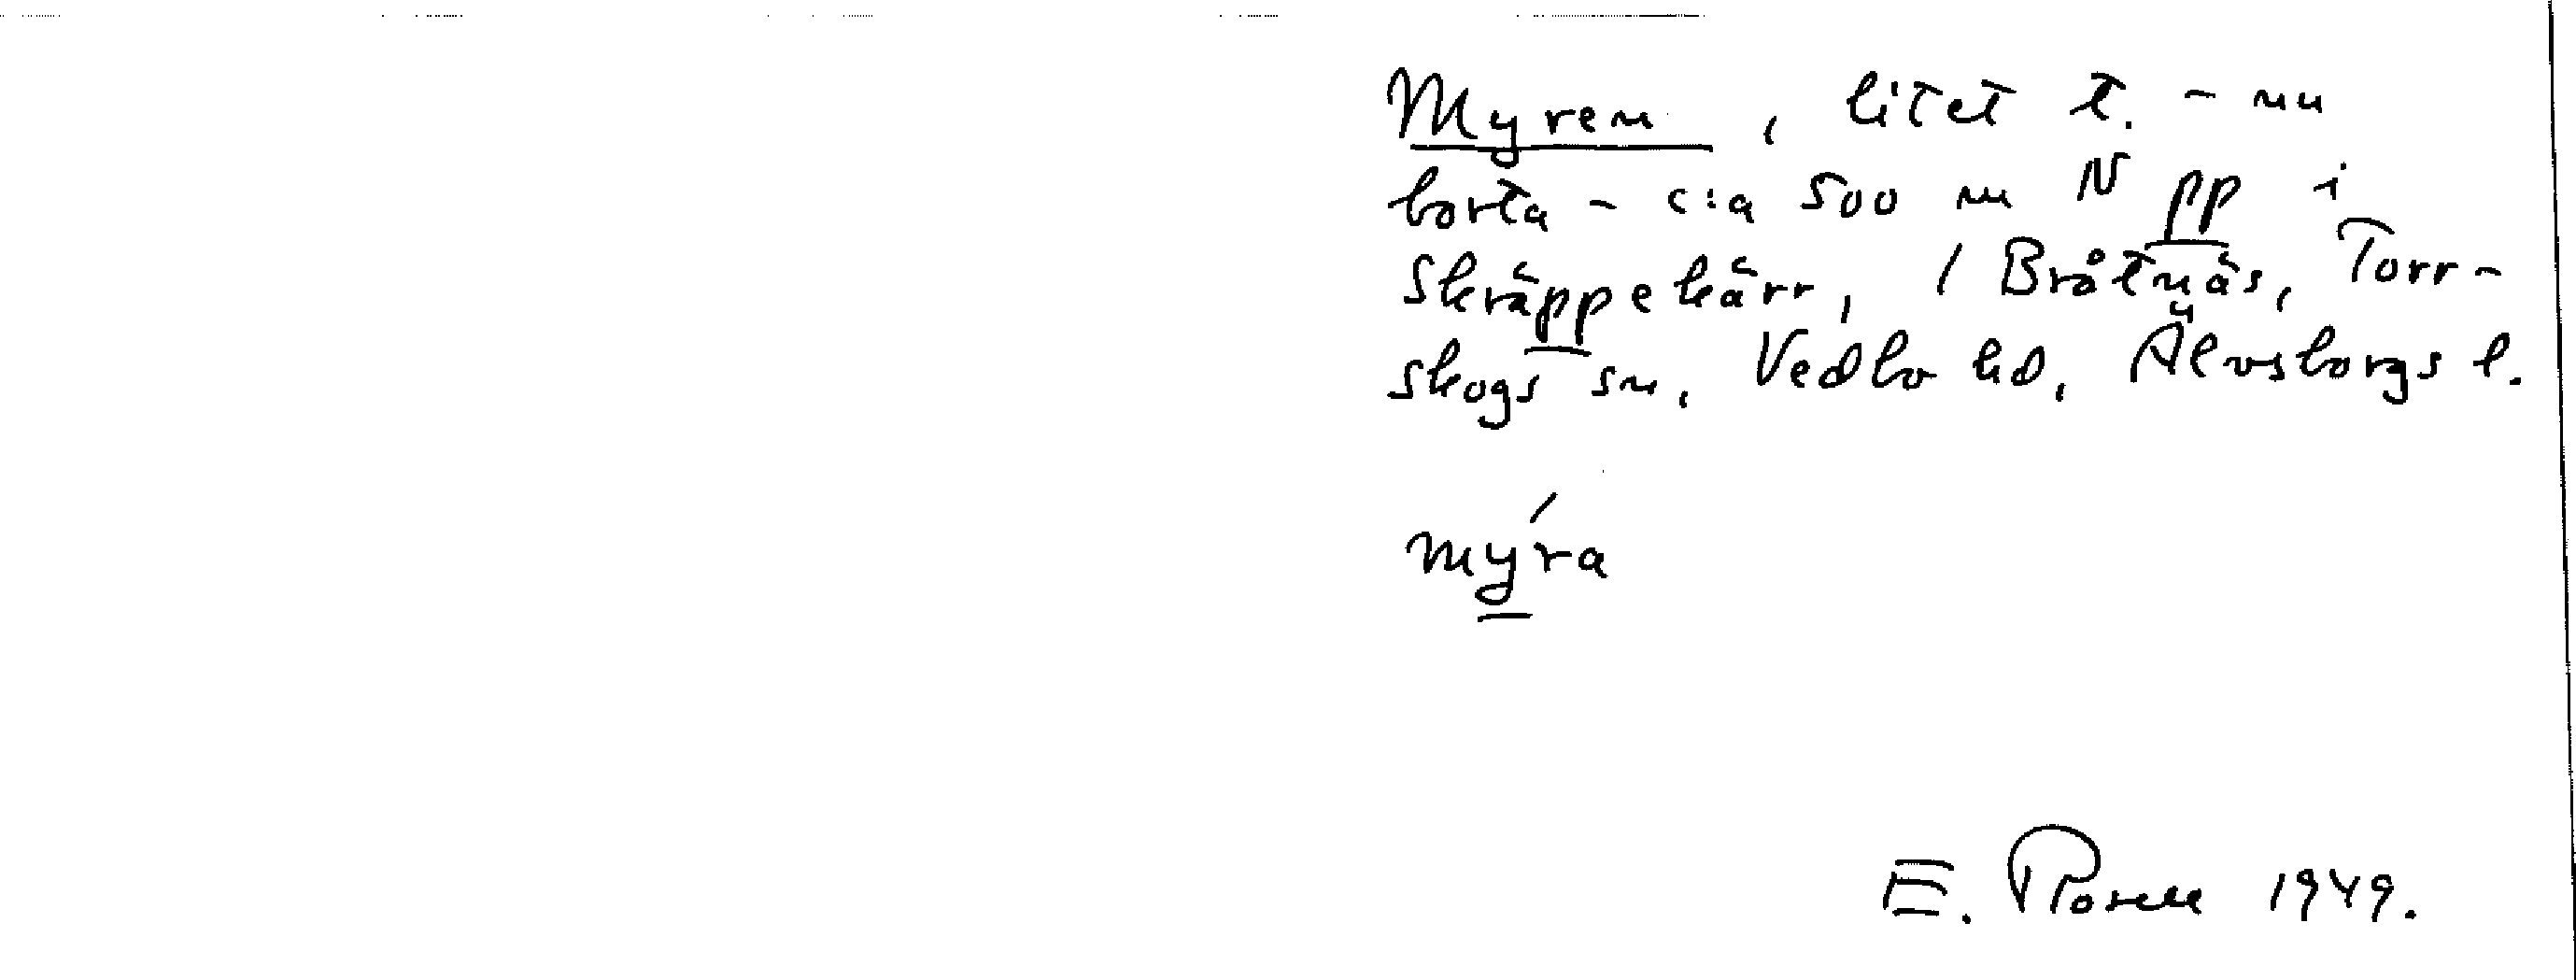 Myren, litet t. - nu
borta - c:a 500 m N pp i
Skräppekärr, 1 Bråtnäs, Torr-
skogs sn, Vedbo hd, Älvsborgs l.
mýra
E. Rosell 1949.